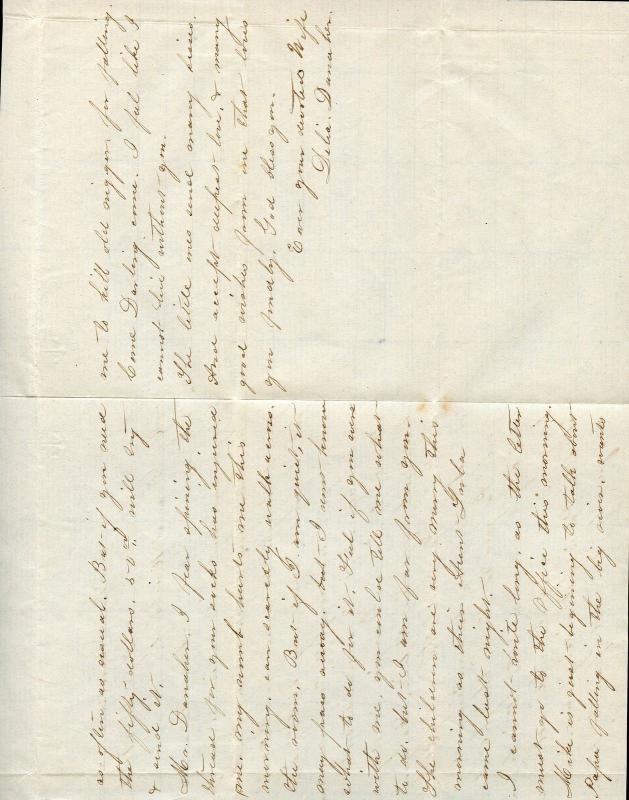 as often as usual. But if you need
the fifty dollars. 50.00 will try
& send it.
Mr. Danaher. I fear spining the
thread for your socks has injured
me. my womb hurts me this
morning. can scarcely walk across
the room. But if I am quiet, it
may pass away. but I wont know
what to do for it. feel if you were
with me, you could tell me what
to do. but I am far from you
The children are very merry this
morning as their Aunt Lula
came last night.
I cannot write long, as the letter
must go to the Office this morning.
Mike is just begining to talk about
Papa falling in the big river. wants
me to kill old nigger for falling.
Come Darling come. I feel like I
cannot live without you.
The little ones send many kisses.
And accept deepest love, & many
good wishes from one that loves
you fondly. God bless you.
Ever your devoted Wife
Delia Danaher.